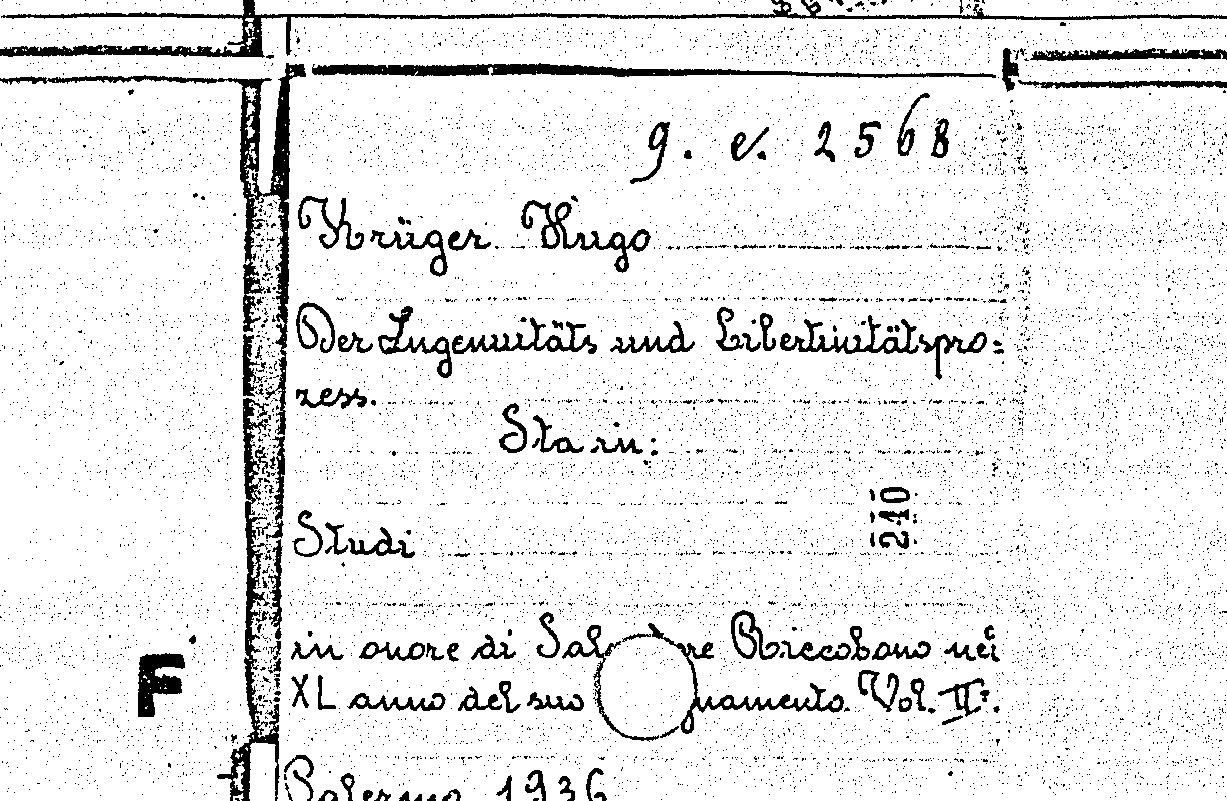 g. e. 2568
Krüger Hugo
Der Ingenuitäts und Libertinitätspro=
zess.
Sta in:
240
Studi
in onore di Riccobono nei
XL anno del suo Vol. II°.
F
Palermo 1936